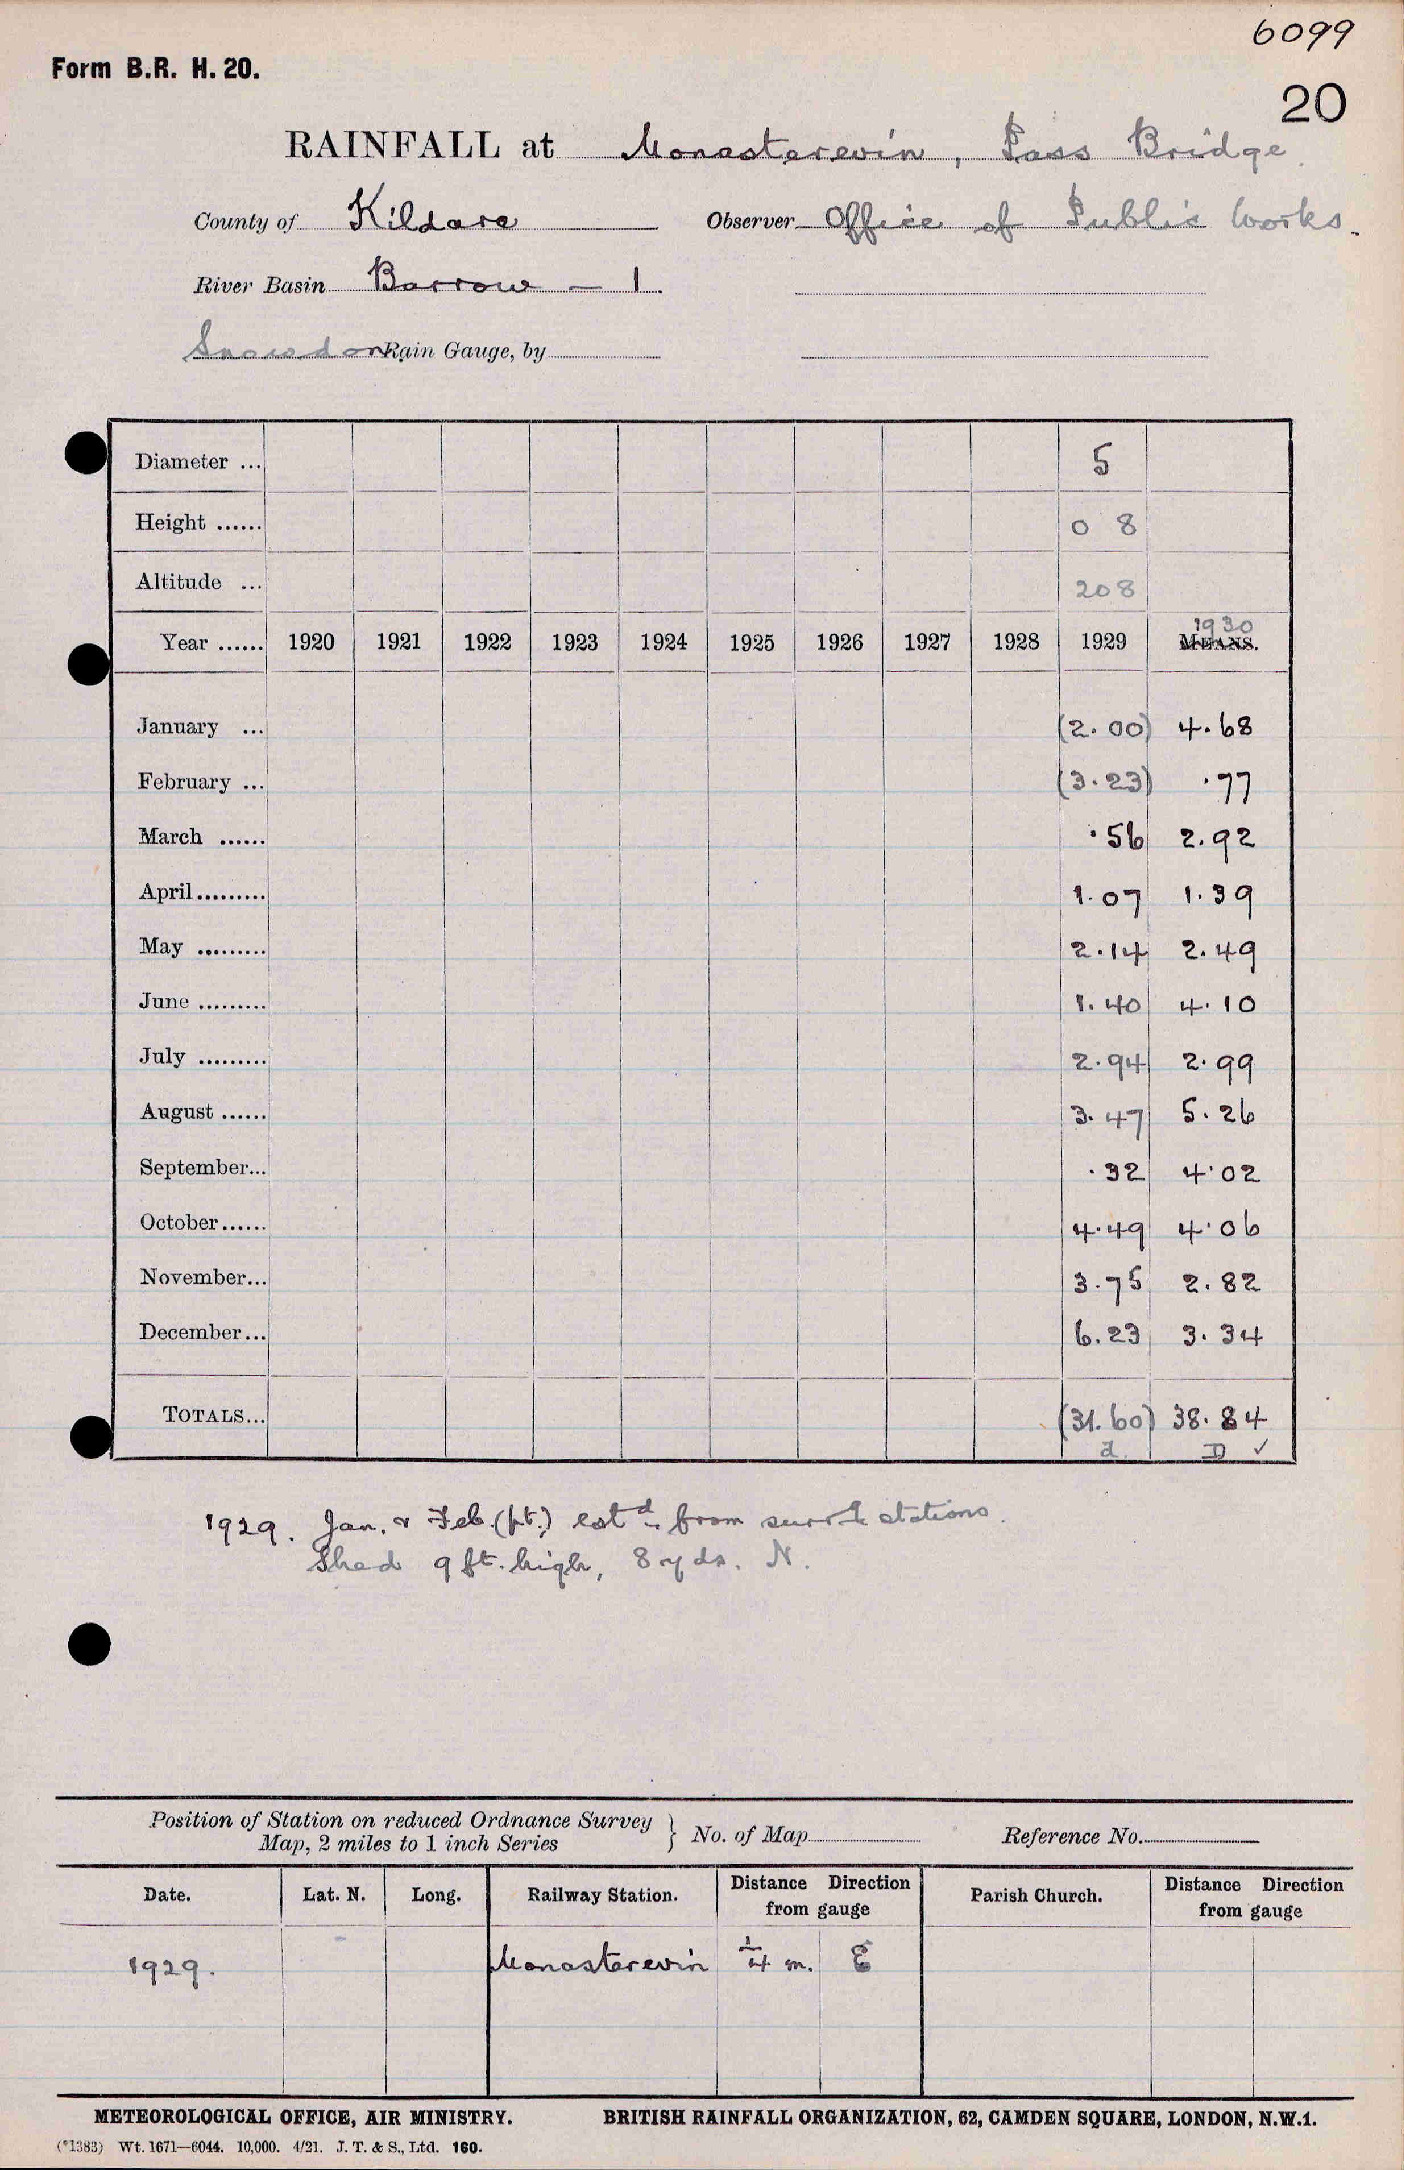 6099
Form B.R. H. 20.
20
RAINFALL at Monasterevin, Pass Bridge.
County of Kildare Observer Office of Public Works.
River Basin Barrow — 1.
Snowdon Rain Gauge, by
Diameter ... 5
Height ...... 0 8
Altitude ... 208
1930
Year ...... 1920 1921 1922 1923 1924 1925 1926 1927 1928 1929 MEANS.
January ... (2.00) 4.68
February ... (3.23) .77
March ...... .56 2.92
April......... 1.07 1.39
May ......... 2.14 2.49
June ......... 1.40 4.10
July ......... 2.94 2.99
August ...... 3.47 5.26
September... .32 4.02
October...... 4.49 4.06
November... 3.75 2.82
December... 6.23 3.34
TOTALS... (31.60) 38.84
d. D ✓
1929. Jan. & Feb. (pt.) estd. from surrg stations.
Shed 9 ft. high, 8 yds. N.
Position of Station on reduced Ordnance Survey
Map, 2 miles to 1 inch Series } No. of Map Reference No.
Date. Lat. N. Long. Railway Station. Distance Direction from gauge Parish Church. Distance Direction from gauge
1929. Monasterevin 1/4 m. E
METEOROLOGICAL OFFICE, AIR MINISTRY. BRITISH RAINFALL ORGANIZATION, 62, CAMDEN SQUARE, LONDON, N.W.1.
(*1383) Wt. 1671—6044. 10,000. 4/21. J. T. & S., Ltd. 160.